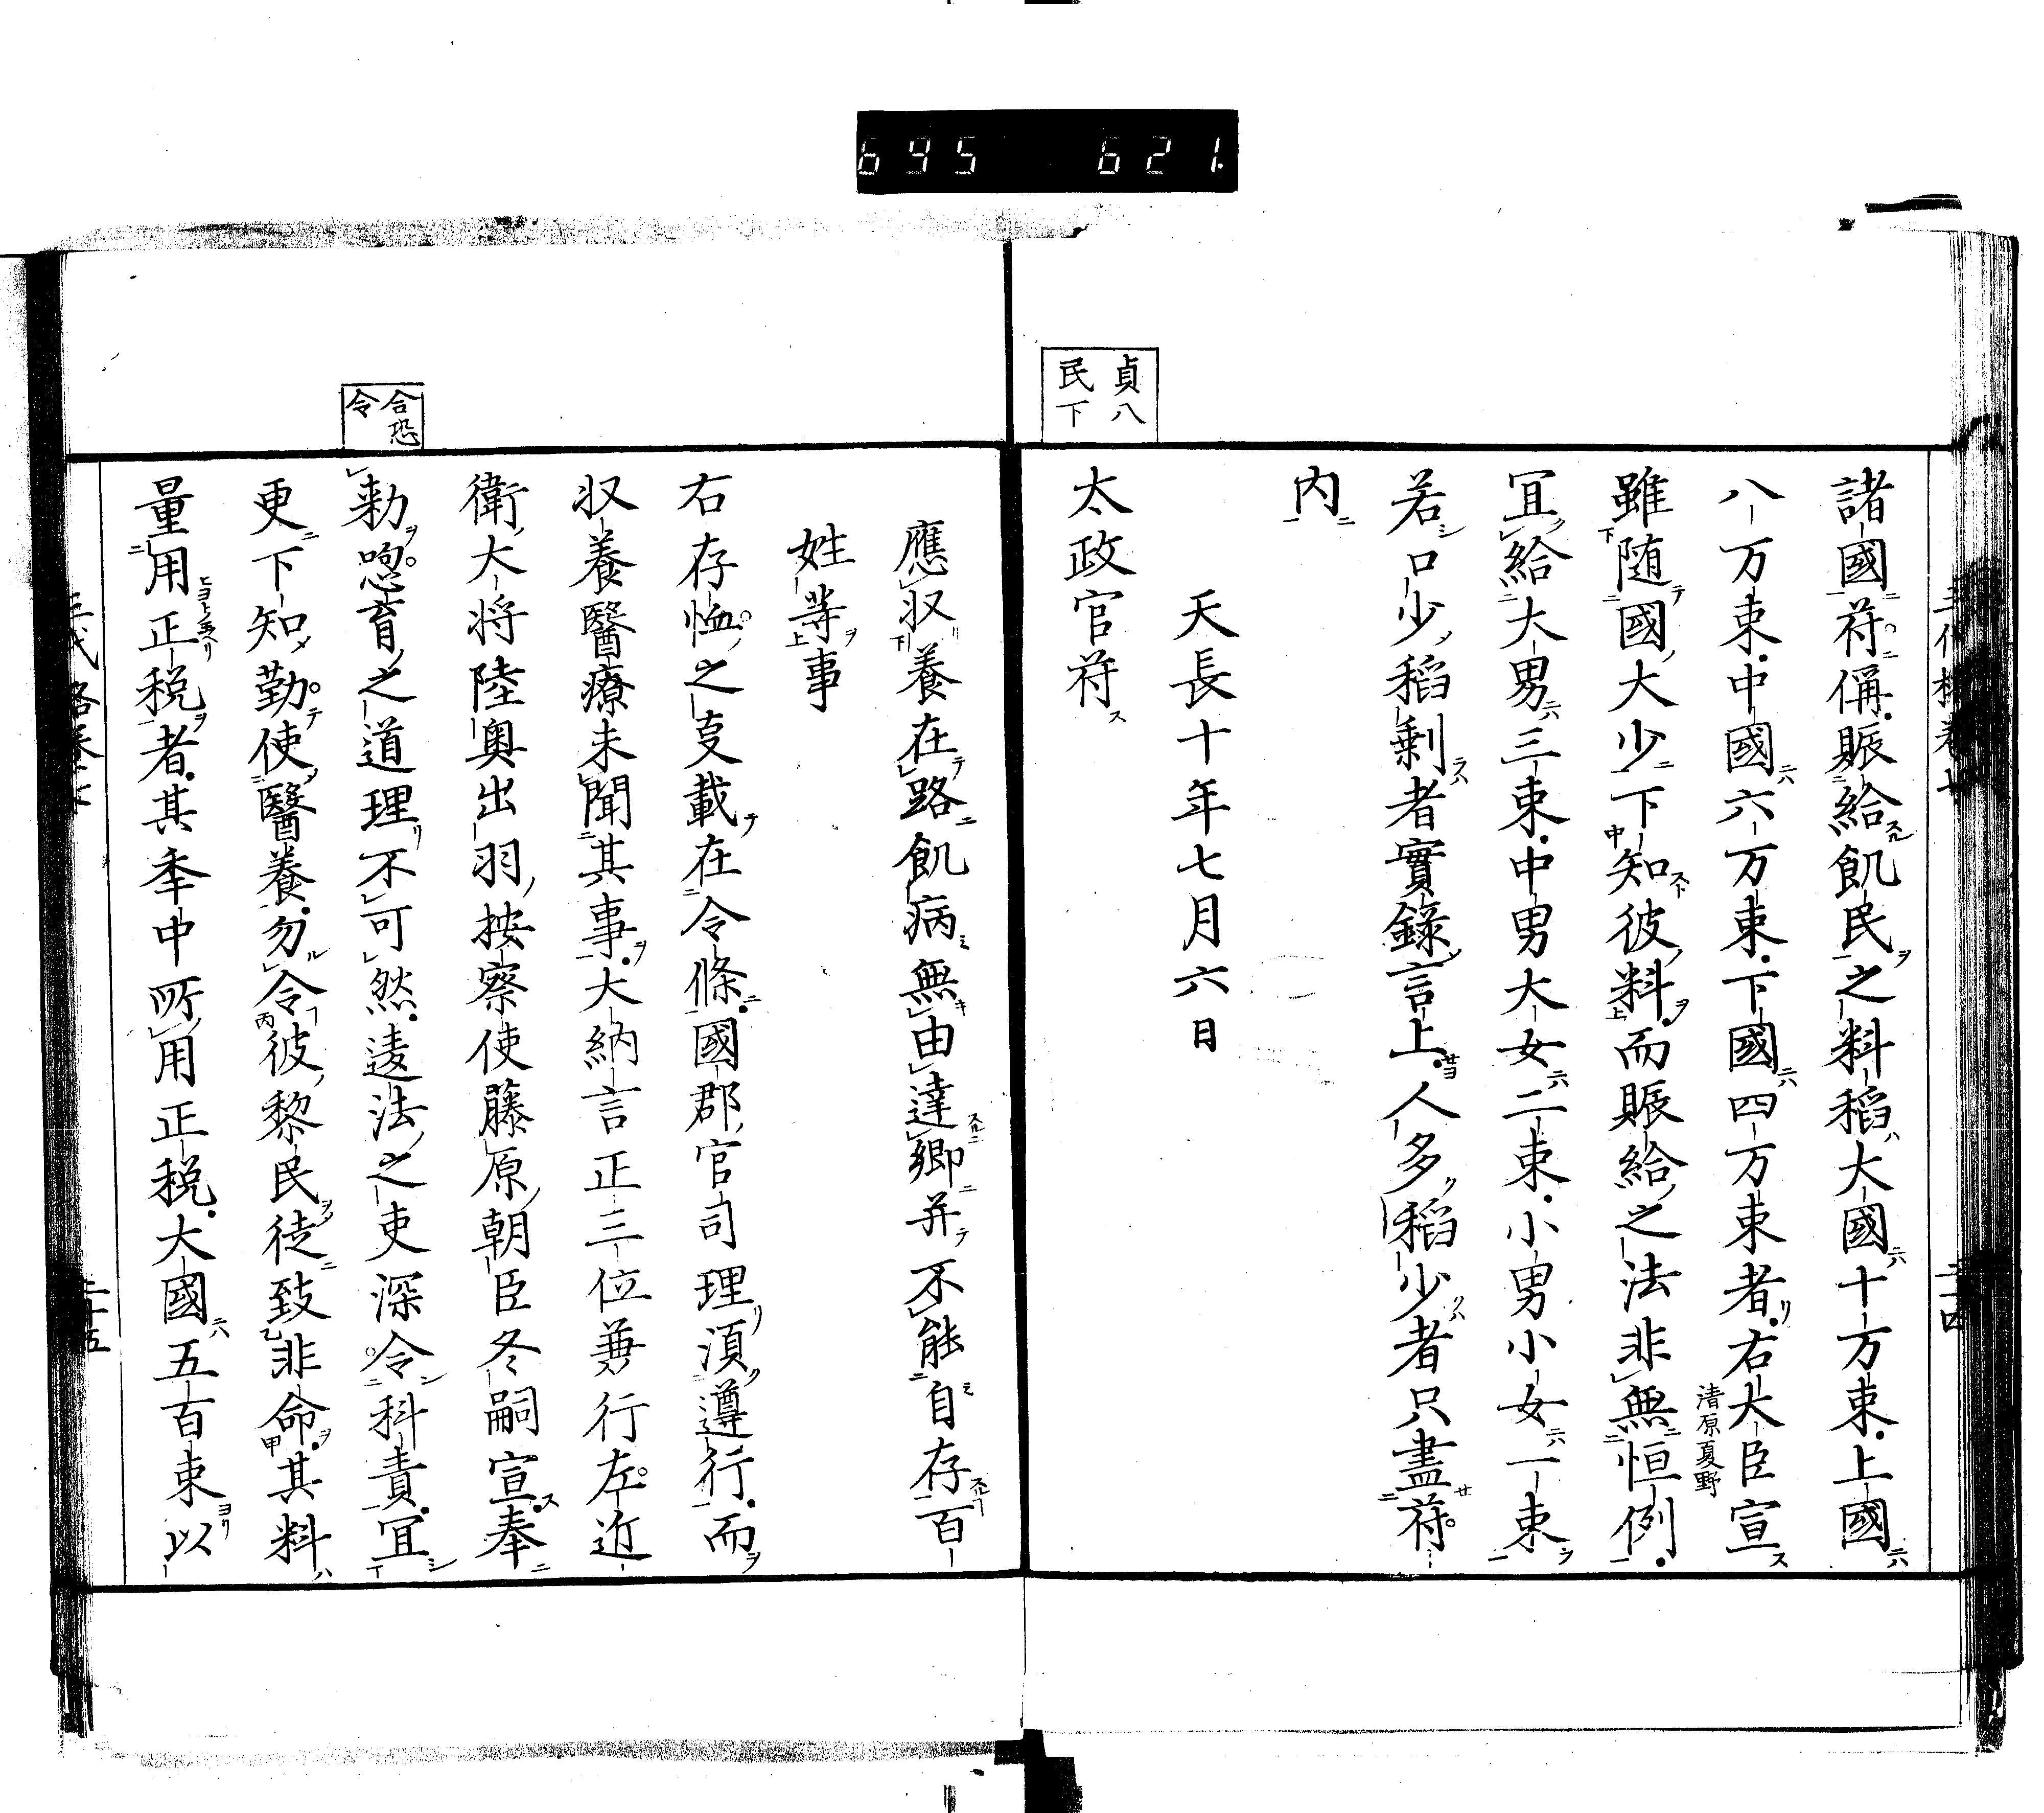 695 621.
貞八
民下
諸國符偁賑給飢民之料稻大國十万束上國
八万束中國六万束下國四万束者右大臣宣
清原夏野
雖随國大少下知彼料而賑給之法非無恒例
冝給大男三束中男大女二束小男小女一束
若口少稻剰者實錄言上人多稻少者只盡符
内
天長十年七月六日
太政官符
應収養在路飢病無由達郷并不能自存百
姓等事
右存恤之㕝載在令條國郡官司理湏遵行而
収養醫療未聞其事大納言正三位兼行左近
衛大将陸奥出羽按察使藤原朝臣冬嗣宣奉
合恐
令
勅惣育之道理不可然違法之吏深令科責冝
更下知勤使醫養勿令彼黎民徒致非命其料
量用正税者其年中所用正税大國五百束以